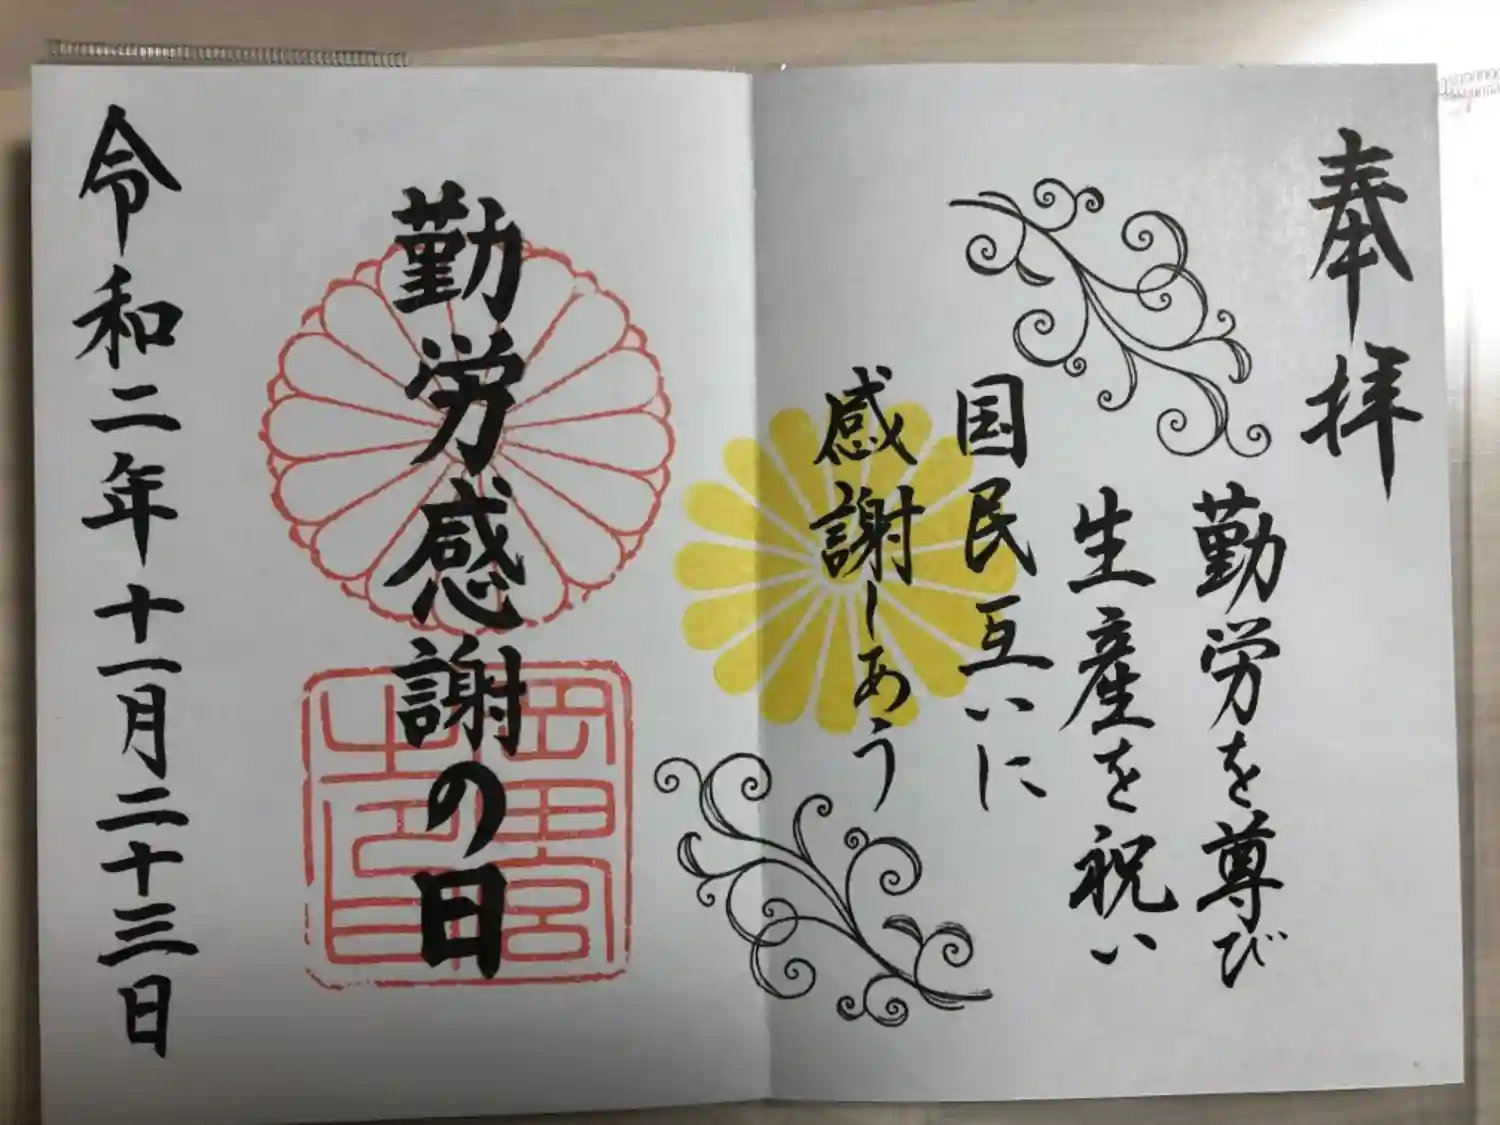 奉拝
勤労を尊び
生産を祝い
国民互いに
感謝しあう
勤労感謝の日
令和二年十一月二十三日